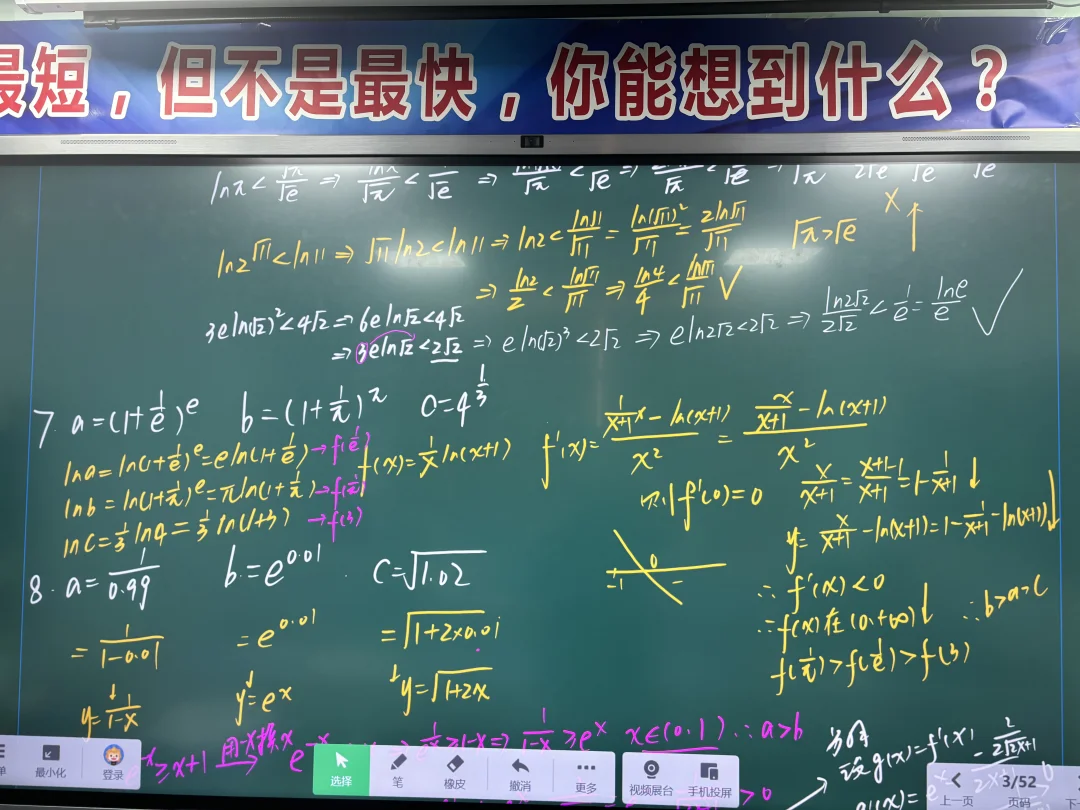 最短，但不是最快，你能想到什么？
lnπ < √π/√e ⇒ lnπ/√π < 1/√e ⇒
ln2^√11 < ln11 ⇒ √11 ln2 < ln11 ⇒ ln2 < ln11/√11 = ln(√11)²/√11 = 2ln√11/√11 √π>√e x↑
⇒ ln2/2 < ln√11/√11 ⇒ ln4/4 < ln√11/√11 ✓
3eln(√2)² < 4√2 ⇒ 6eln√2 < 4√2
⇒ 3eln√2 < 2√2 ⇒ eln(√2)³ < 2√2 ⇒ eln2√2 < 2√2 ⇒ ln2√2/2√2 < 1/e = lne/e ✓
7. a=(1+1/e)^e b=(1+1/π)^π c=4^(1/3)
lna=ln(1+1/e)^e=eln(1+1/e) →f(1/e)
lnb=ln(1+1/π)^e=πln(1+1/π) →f(1/π)
lnc=1/3 ln4=1/3 ln(1+3) →f(3)
f(x)=1/x ln(x+1) f'(x)=(1/(x+1) x-ln(x+1))/x² = (x/(x+1)-ln(x+1))/x²
则f'(0)=0 x/(x+1)=(x+1-1)/(x+1)=1-1/(x+1)↓
y=x/(x+1)-ln(x+1)=1-1/(x+1)-ln(x+1)↓
-1 0
∴f'(x)<0
∴f(x)在(0,+∞)↓ ∴b>a>c
f(1/π)>f(1/e)>f(3)
8. a=1/0.99 b=e^0.01 c=√1.02
=1/(1-0.01) =e^0.01 =√(1+2×0.01)
↓y=1/(1-x) ↓y=e^x ↓y=√(1+2x)
e^x≥x+1 用-x换x e^-x 1/(1-x)≥e^x x∈(0,1) ∴a>b
设g(x)=f'(x)
>0
最小化
登录
选择
笔
橡皮
撤消
更多
视频展台
手机投屏
上一页
3/52
页码